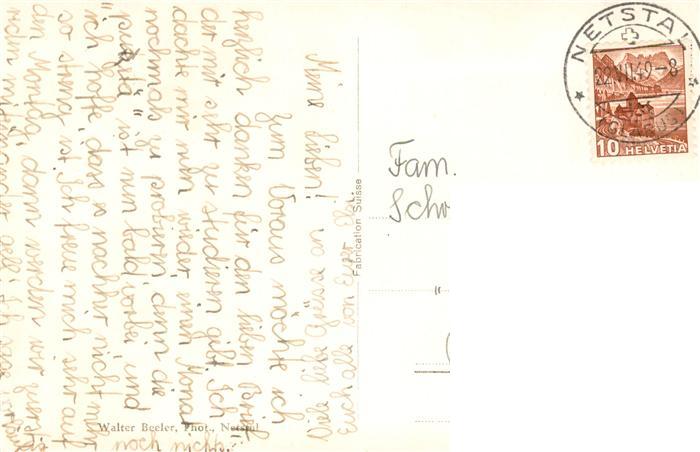 Meine Lieben!
Zum Voraus möchte ich
herzlich danken für den lieben Brief
der mir sehr zu studieren gibt. Ich
dachte mir nun wieder einen Monat
nochmals zu probieren, denn die
ist nun bald vorbei und
ich hoffe, dass es nachher nicht mehr
so streng ist. Ich freue mich sehr auf
den Montag, dann werden wir
reden miteinander
noch nicht
Viele liebe Grüsse an
Euch alle von Eurer
Walter Beeler, Phot., Netstal
Fabrication Suisse
NETSTAL
49-8
10 HELVETIA
Fam.
Scho
"